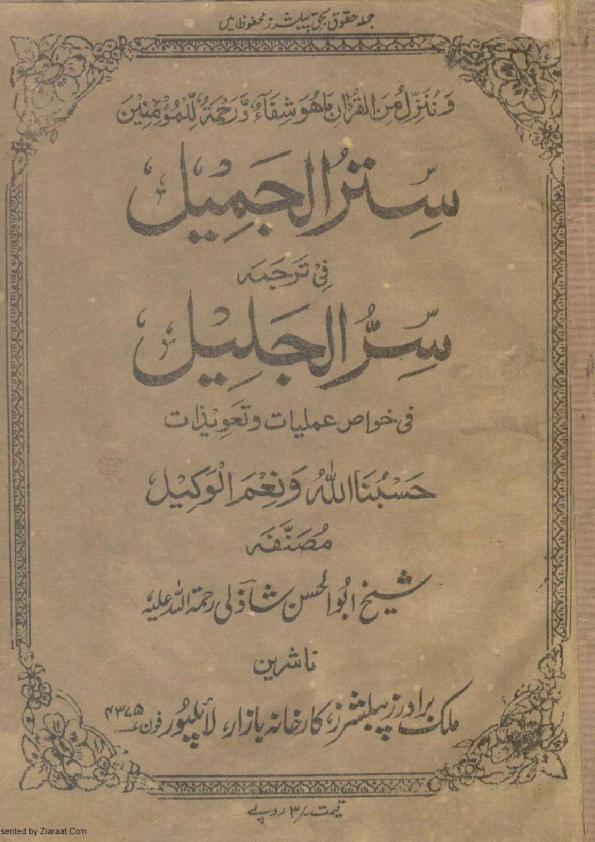 جملہ حقوق بحق پبلیشرز محفوظ ہیں
وَنُنَزِّلُ مِنَ الْقُرْاٰنِ مَا هُوَ شِفَآءٌ وَّرَحْمَةٌ لِّلْمُؤْمِنِیْنَ
سِتْرُ الْجَمِیْل
فِیْ تَرجَمَه
سِرُّ الْجَلِیْل
فی خواص عملیات و تعویذات
حَسْبُنَا اللّٰهُ وَنِعْمَ الْوَکِیْل
مُصَنَّفَه
شیخ ابوالحسن شاذلی رحمۃ اللہ علیہ
ناشرین
ملک برادرز پبلیشرز، کارخانہ بازار، لائلپور فون ۴۳۷۵
قیمت ۳/ روپے
sented by Ziaraat.Com